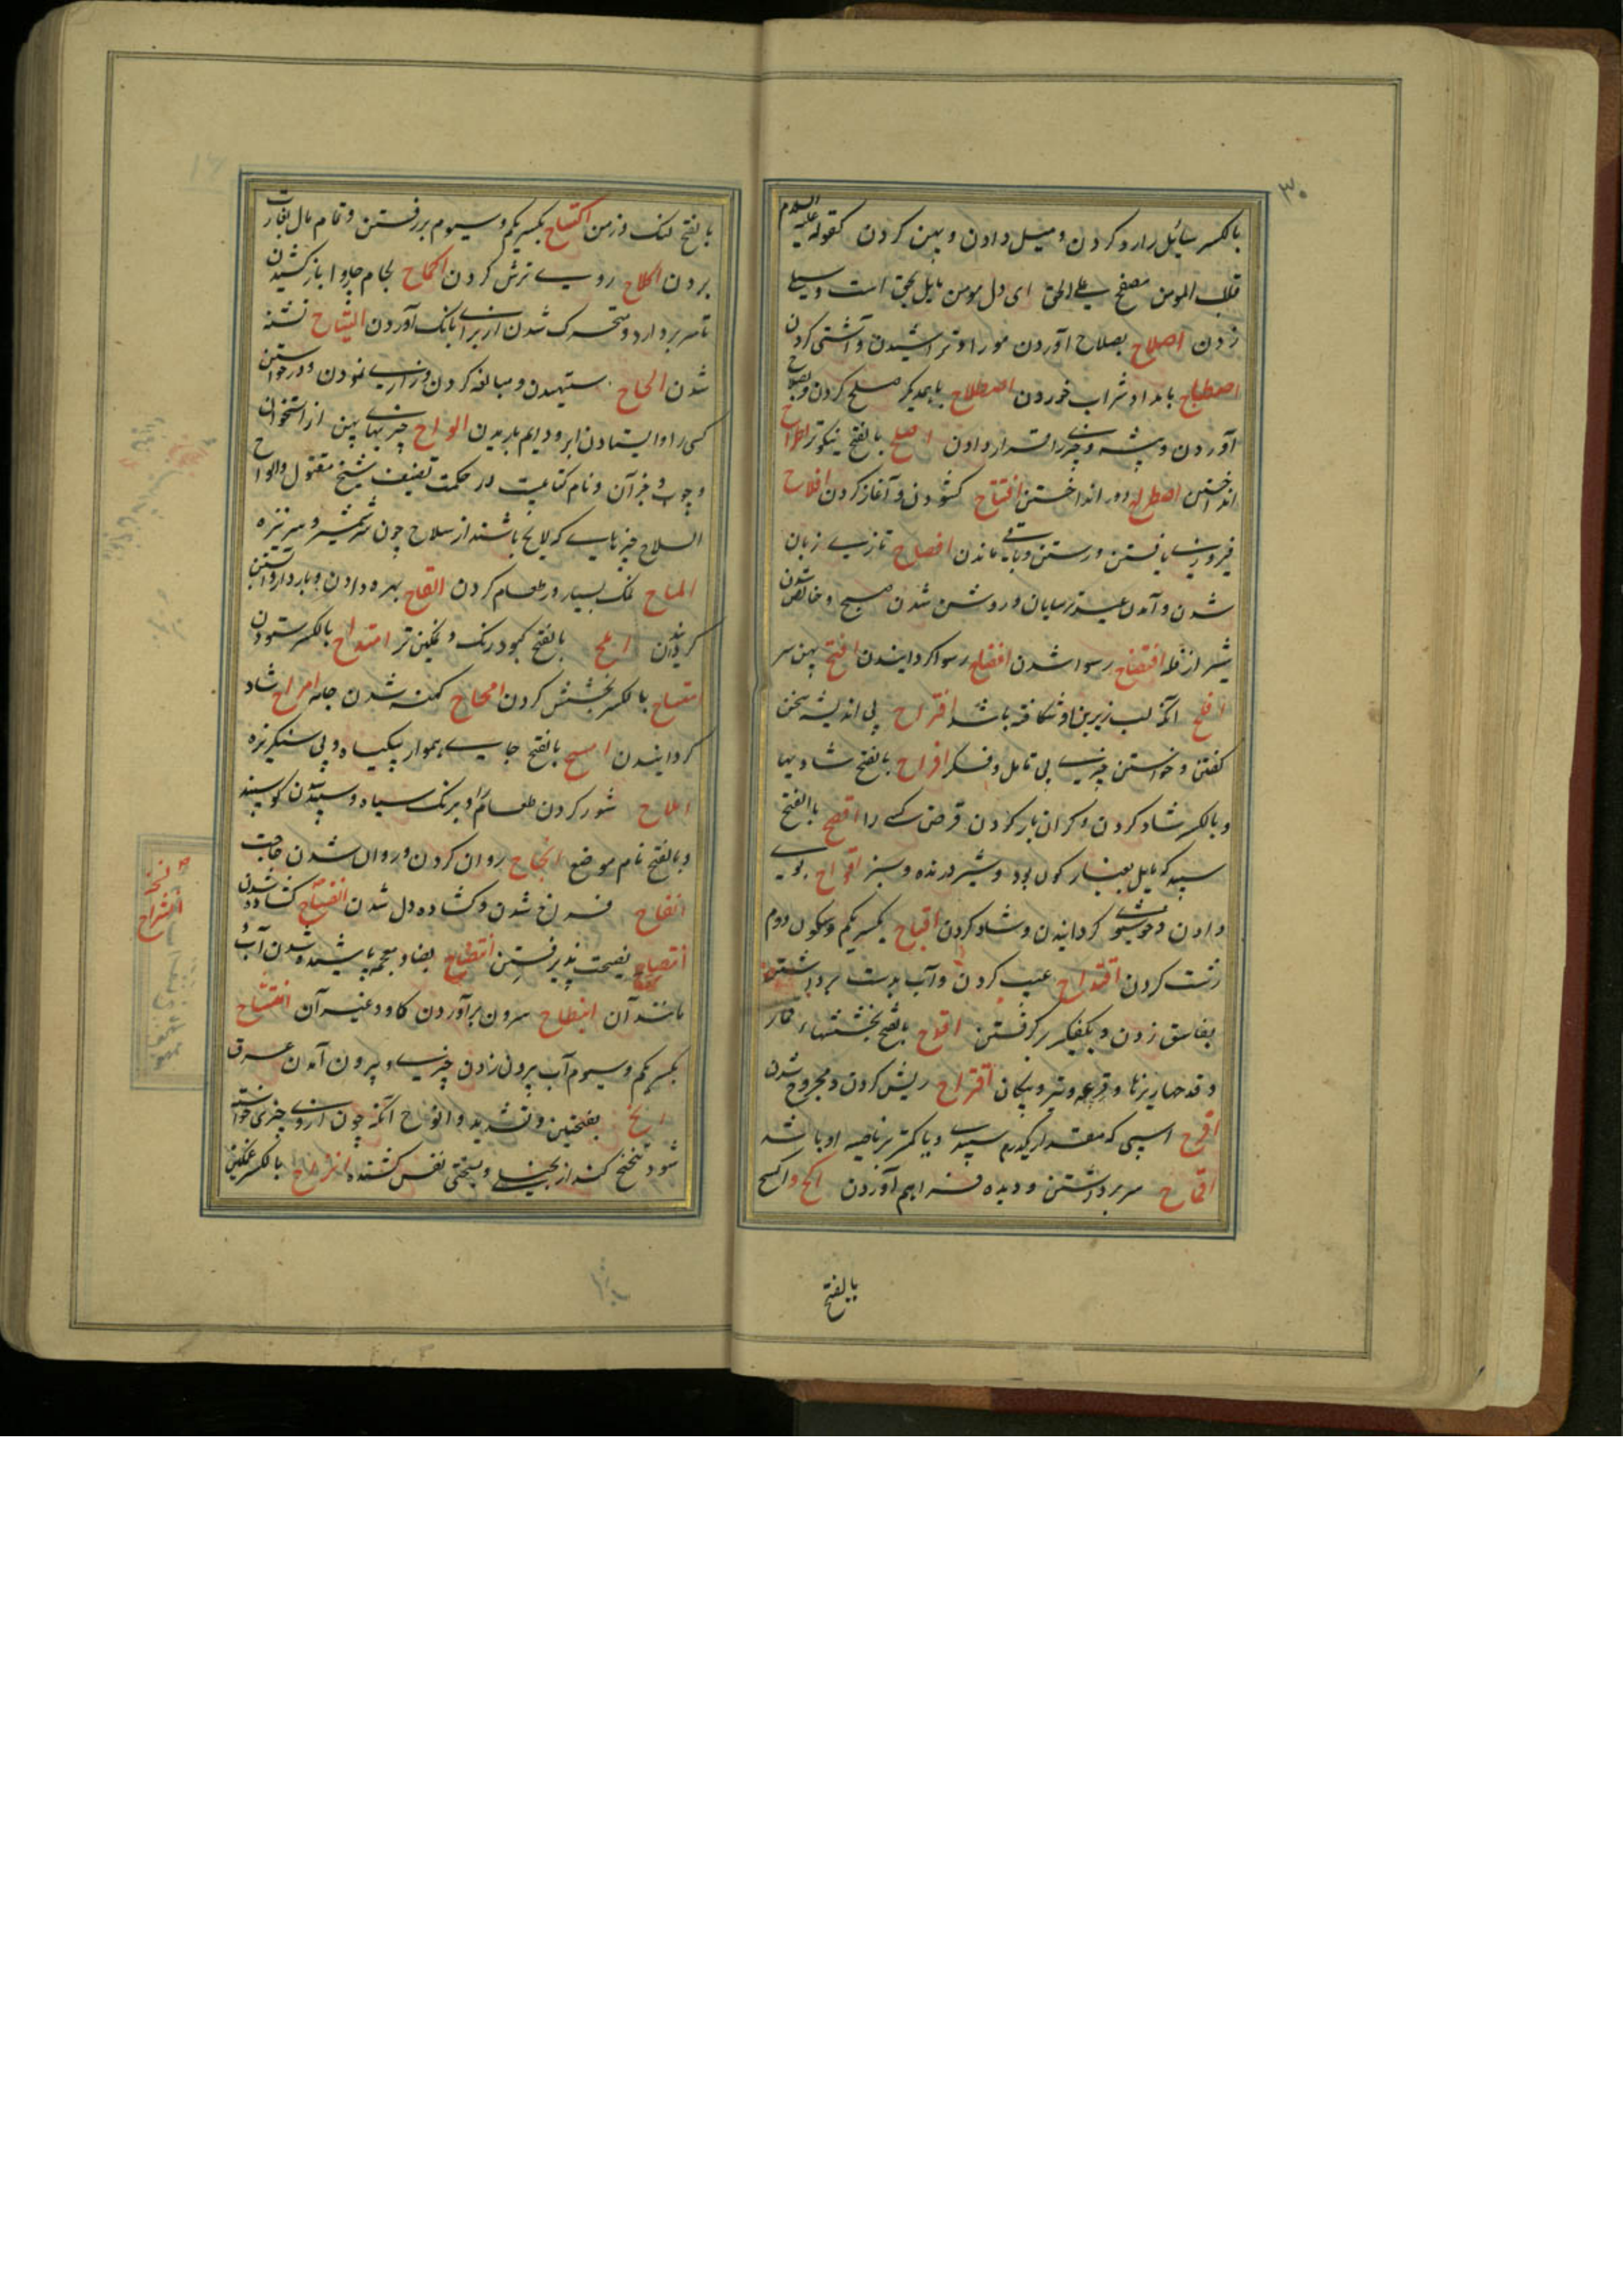 ۳۰
بالکسر سائل را رد کردن و میل دادن و پهن کردن کقوله علیه السلام
قلب المومن مصفح علی الحق ای دل مومن مایل بحق است و سیلے
زدن اصلاح بصلاح آوردن مو را و تراشیدن و آشتی کردن
اصطباح بامداد شراب خوردن اصطلاح با همدیگر صلح کردن و بصلاح
آوردن و پشه و چیزے را قرار دادن اصلح بالفتح نیکوتر اطراح
انداختن اضطراح دور انداختن افتتاح کشودن و آغاز کردن افلاح
فیروزے یافتن و رستن و باقے ماندن افصاح تازے زبان
شدن و آمدن عید ترسایان و روشن شدن صبح و خالص شدن
شیر از فله افتضاح رسوا شدن افضاح رسوا کردانیدن افتح پهن سر
افلح آنکه لب زیرین او شکافته باشد اقتراح بی اندیشه سخن
کفتن و خواستن چیزے بی تامل و فکر افراح بالفتح شادیها
و بالکسر شاد کردن و کران بار کردن قرض کسے را افضح باالفتح
سپید که مایل بغبار کون بود و شیر درنده و سبز بوے
دادن و خوشبوے کردانیدن و شاد کردن اقباح بکسر یکم و سکون دوم
زشت کردن اقتداح عیب کردن و آب بدست برداشتن
بفاسق زدن و بکفکیر برکرفتن اقداح بالفتح بخششهاء قمار
و قدحها ریزنا و قرعه و تیر و پیکان اقتراح ریش کردن و مجروح شدن
اقرح اسپی که مقدار یکدرم سپیدے و یا کمتر بر ناصیه او باشد
اقماح سر برداشتن و دیده فراهم آوردن اکح و اکسح
بالفتح
بالفتح لنک و زمن اکتساح بکسر یکم و سیوم بررفتن و تمام مال بغارت
بردن اکلاح روے ترش کردن اکماح لجام چاروا بازکشیدن
تا سر بردارد و متحرک شدن از براے بانک آوردن التیاح تشنه
شدن الحاح ستهیدن و مبالغه کردن و زارے نمودن و درخواستن
کسی را و ایستادن ابر و دایم باریدن الواح چیزهاے پهن از استخوان
و چوب و جز آن و نام کتابیست در حکمت تصنیف شیخ مقتول و الواح
السلاح چیزهایے که لایح باشند از سلاح چون شمشیر و سر نیزه
الماح نمک بسیار در طعام کردن القاح بهره دادن و باردار و آبستن
کردانیدن املح بالفتح کبود رنک و نمکین تر امتداح بالکسر ستودن
امتیاح بالکسر بخشش کردن امحاح کهنه شدن جامه امراح شاد
کردانیدن امسح بالفتح جایے هموار بیکیاه و بی سنکریزه
املاح شور کردن طعام را و برنک سیاه و سپید شدن کوسپند
و بالفتح نام موضع انجاح روان کردن و روان شدن حاجت
انفاح فراخ شدن و کشاده دل شدن انفساح کشاده شدن
انتصاح نصیحت پذیرفتن انتضاح بضاد معجمه پاشیده شدن آب و
مانند آن انتطاح سرون برآوردن کاو و غیر آن انتتاح
بکسر یکم و سیوم آب بیرون زدن چیزے و بیرون آمدن عرق
انح بفتحتین و تشدید و انواح آنکه چون ازوے چیزی خواسته
شود تنحنح کند از بخیلے و سختی نفس کشنده انزاح بالکسر غمکین
نسخه
انشراح